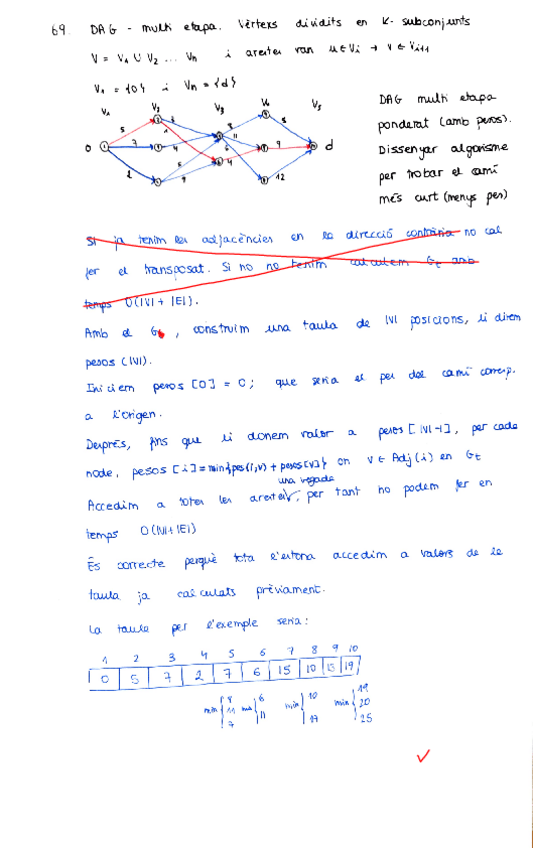 69. DAG - multi etapa. Vèrtexs dividits en K- subconjunts
V = V₁ ∪ V₂ ... Vn i arestes van u ∈ Vi → v ∈ Vi+1
V₁ = {o} i Vn = {d}
V₁ V₂ V₃ V₄ V₅
o d
5 7 2 4 9 12
DAG multi etapa
ponderat (amb pesos).
Dissenyar algorisme
per trobar el camí
més curt (menys pes)
Si ja tenim les adjacències en la direcció contrària no cal
fer el transposat. Si no ho tenim calculem Gt amb
temps O(|V| + |E|).
Amb el Gt, construïm una taula de |V| posicions, li direm
pesos (|V|).
Iniciem pesos [0] = 0; que seria el pes del camí corresp.
a l'origen.
Després, fins que li donem valor a pesos [|V|-1], per cada
node, pesos [i] = min{pes(i,v) + pesos[v]} on v ∈ Adj(i) en Gt
una vegada
Accedim a totes les arestes, per tant ho podem fer en
temps O(|V|+|E|)
És correcte perquè tota l'estona accedim a valors de la
taula ja calculats prèviament.
La taula per l'exemple seria:
1 2 3 4 5 6 7 8 9 10
0 5 7 2 7 6 15 10 13 19
min { 8 11 7 min { 6 11 min { 10 17 min { 19 20 25